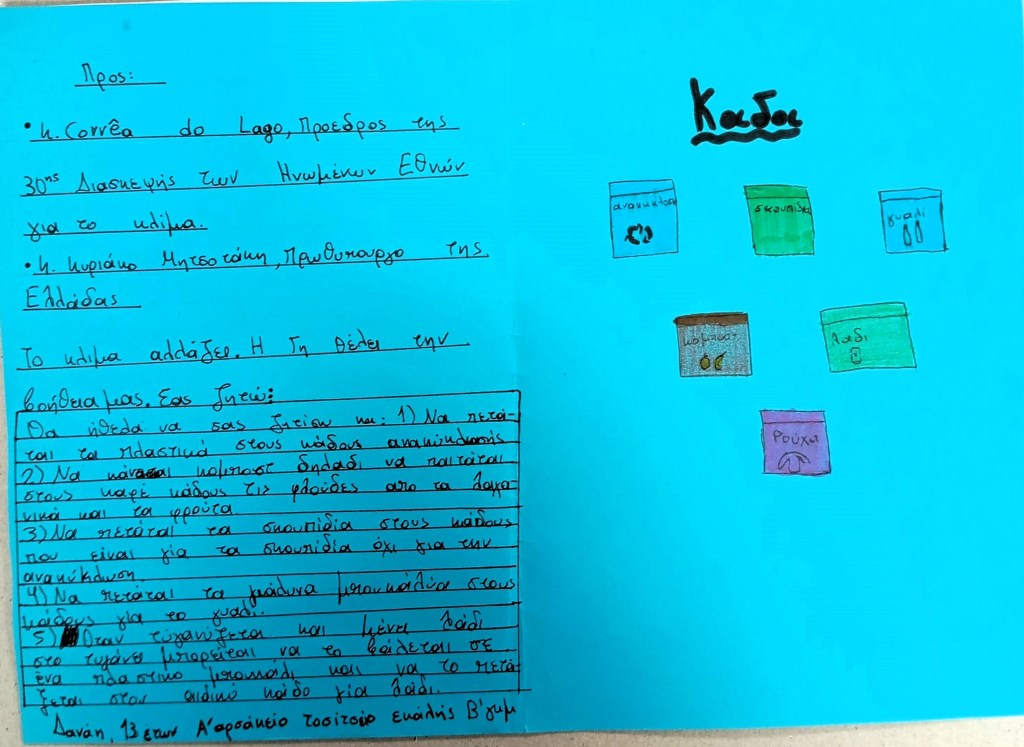 Προς:
• κ. Corrêa do Lago, Πρόεδρος της
30ης Διασκεψής των Ηνωμένων Εθνών
για το κλίμα.
• κ. Κυριάκο Μητσοτάκη, Πρωθυπουργο της
Ελλάδας
Το κλιμα αλλάζει. Η Γη θέλει την
βοήθεια μας. Σας ζητώ:
Θα ήθελα να σας ζητίσω και: 1) Να πετά-
ται τα πλαστικά στους κάδους ανακύκλωσής
2) Να κάνεται κομποστ δηλαδι να παιτάται
στους καφέ κάδους τις φλούδες απο τα λαχα-
νικά και τα φρούτα.
3) Να πετάται τα σκουπίδια στους κάδους
που είναι για τα σκουπίδια όχι για την
ανακύκλωση.
4) Να πετάται τα γιάλυνα μπουκάλυα στους
κάδους για το γυαλι.
5) Οταν τύγανύζεται και μένει λάδι
στο τυγάνι μπορείται να το βάλεται σε
ένα πλαστικο μπουκάλι και να το πετά-
ζεται στον ειδικό κάδο για λάδι.
Δανάη, 13 ετων Α'αρσάκειο τοσιτσειο εκάλής Β'γυμ
Καδοι
ανακυκλωση
σκουπιδια
γυαλι
κομποστ
λαδι
Ρούχα